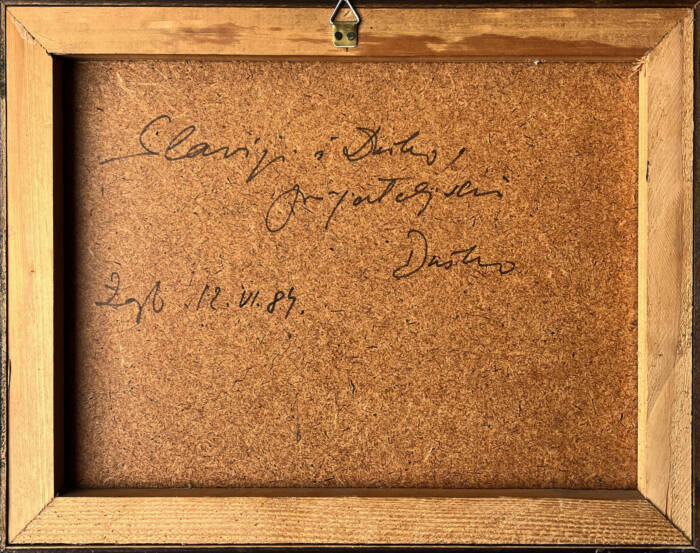 Slaviji i Dušku,
prijateljski
Duško
Zgb. 12. VI. 84.